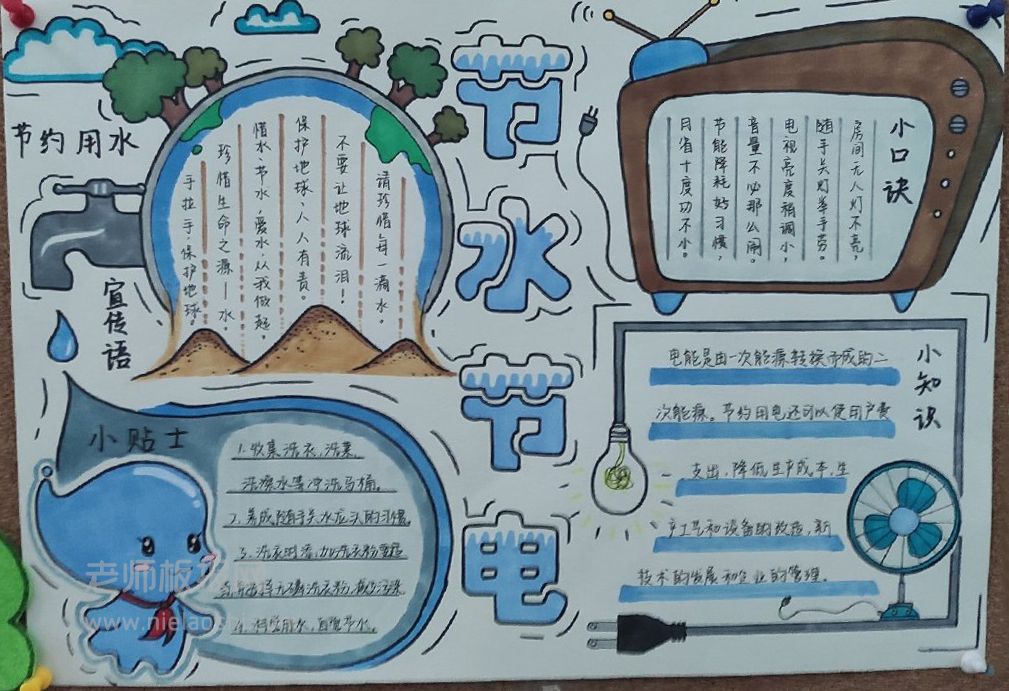 节水节电
节约用水
宣传语
请珍惜每一滴水。
不要让地球流泪！
保护地球，人人有责。
惜水、节水、爱水，从我做起。
珍惜生命之源——水。
手拉手，保护地球。
小口诀
房间无人灯不亮，
随手关灯举手劳。
电视亮度稍调小，
音量不必那么闹。
节能降耗好习惯，
月省十度功不小。
小贴士
1.收集洗衣、洗菜、
洗澡水等冲洗马桶。
2.养成随手关水龙头的习惯。
3.洗衣时添加洗衣粉要适
选择无磷洗衣粉，减少污染
4.科学用水，自觉节水。
小知识
电能是由一次能源转换而成的二
次能源。节约用电还可以使用户费
支出，降低生产成本，生
产工艺和设备的改造，新
技术的发展和企业的管理。
老师板报网
www.nielaos